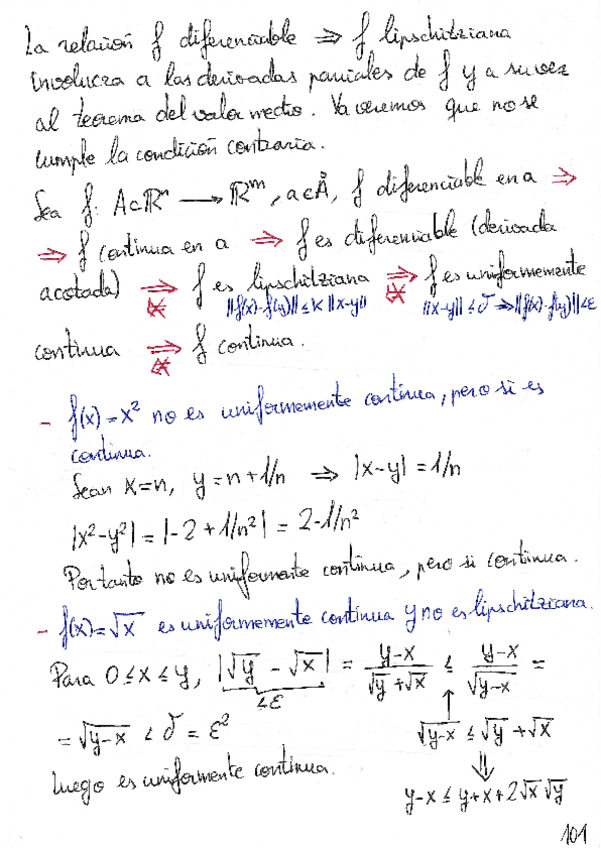 La relación f diferenciable ⇒ f lipschitziana
involucra a las derivadas parciales de f y a su vez
al teorema del valor medio. Ya veremos que no se
cumple la condición contraria.
Sea f: A⊂ℝⁿ ⟶ ℝᵐ, a∈Å, f diferenciable en a ⇒
⇒ f continua en a ⇒ f es diferenciable (derivada
acotada) ⇒ f es lipschitziana ⇒ f es uniformemente
⇍ ||f(x)-f(y)|| ≤ K ||x-y|| ⇍ ||x-y|| ≤ δ ⇒ ||f(x)-f(y)|| < ε
continua ⇒ f continua.
⇍
- f(x)=x² no es uniformemente continua, pero si es
continua.
Sean x=n, y=n+1/n ⇒ |x-y| = 1/n
|x²-y²| = |-2+1/n²| = 2-1/n²
Por tanto no es uniformente continua, pero si continua.
- f(x)=√x es uniformemente continua y no es lipschitziana.
Para 0≤x≤y, |√y - √x| = (y-x)/(√y+√x) ≤ (y-x)/√(y-x) =
≤ε
= √(y-x) < δ = ε² √(y-x) ≤ √y + √x
⇓
Luego es uniformente continua.
y-x ≤ y+x+2√x√y
101